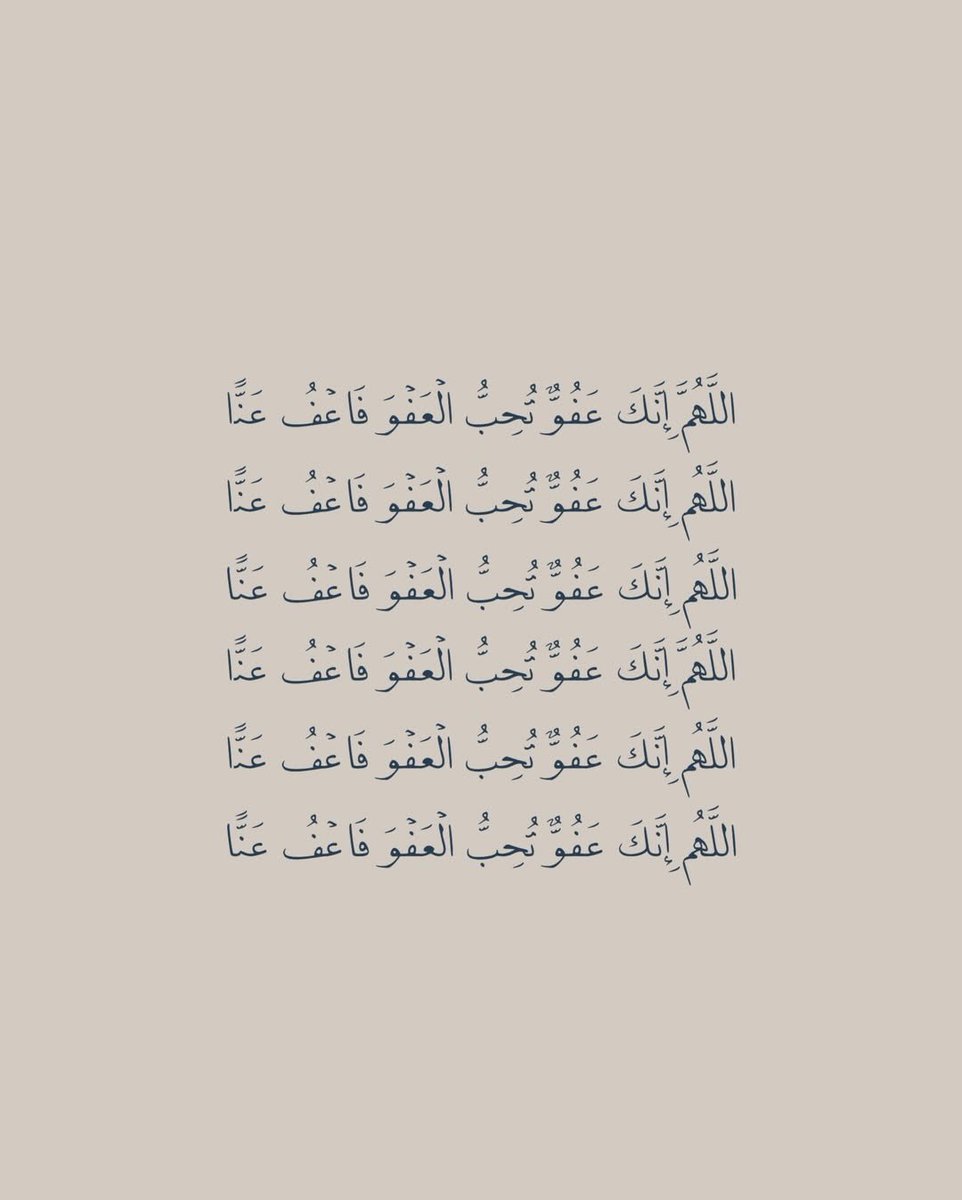 اللَّهُمَّ إِنَّكَ عَفُوٌّ تُحِبُّ الْعَفْوَ فَاعْفُ عَنَّا
اللَّهُمَّ إِنَّكَ عَفُوٌّ تُحِبُّ الْعَفْوَ فَاعْفُ عَنَّا
اللَّهُمَّ إِنَّكَ عَفُوٌّ تُحِبُّ الْعَفْوَ فَاعْفُ عَنَّا
اللَّهُمَّ إِنَّكَ عَفُوٌّ تُحِبُّ الْعَفْوَ فَاعْفُ عَنَّا
اللَّهُمَّ إِنَّكَ عَفُوٌّ تُحِبُّ الْعَفْوَ فَاعْفُ عَنَّا
اللَّهُمَّ إِنَّكَ عَفُوٌّ تُحِبُّ الْعَفْوَ فَاعْفُ عَنَّا